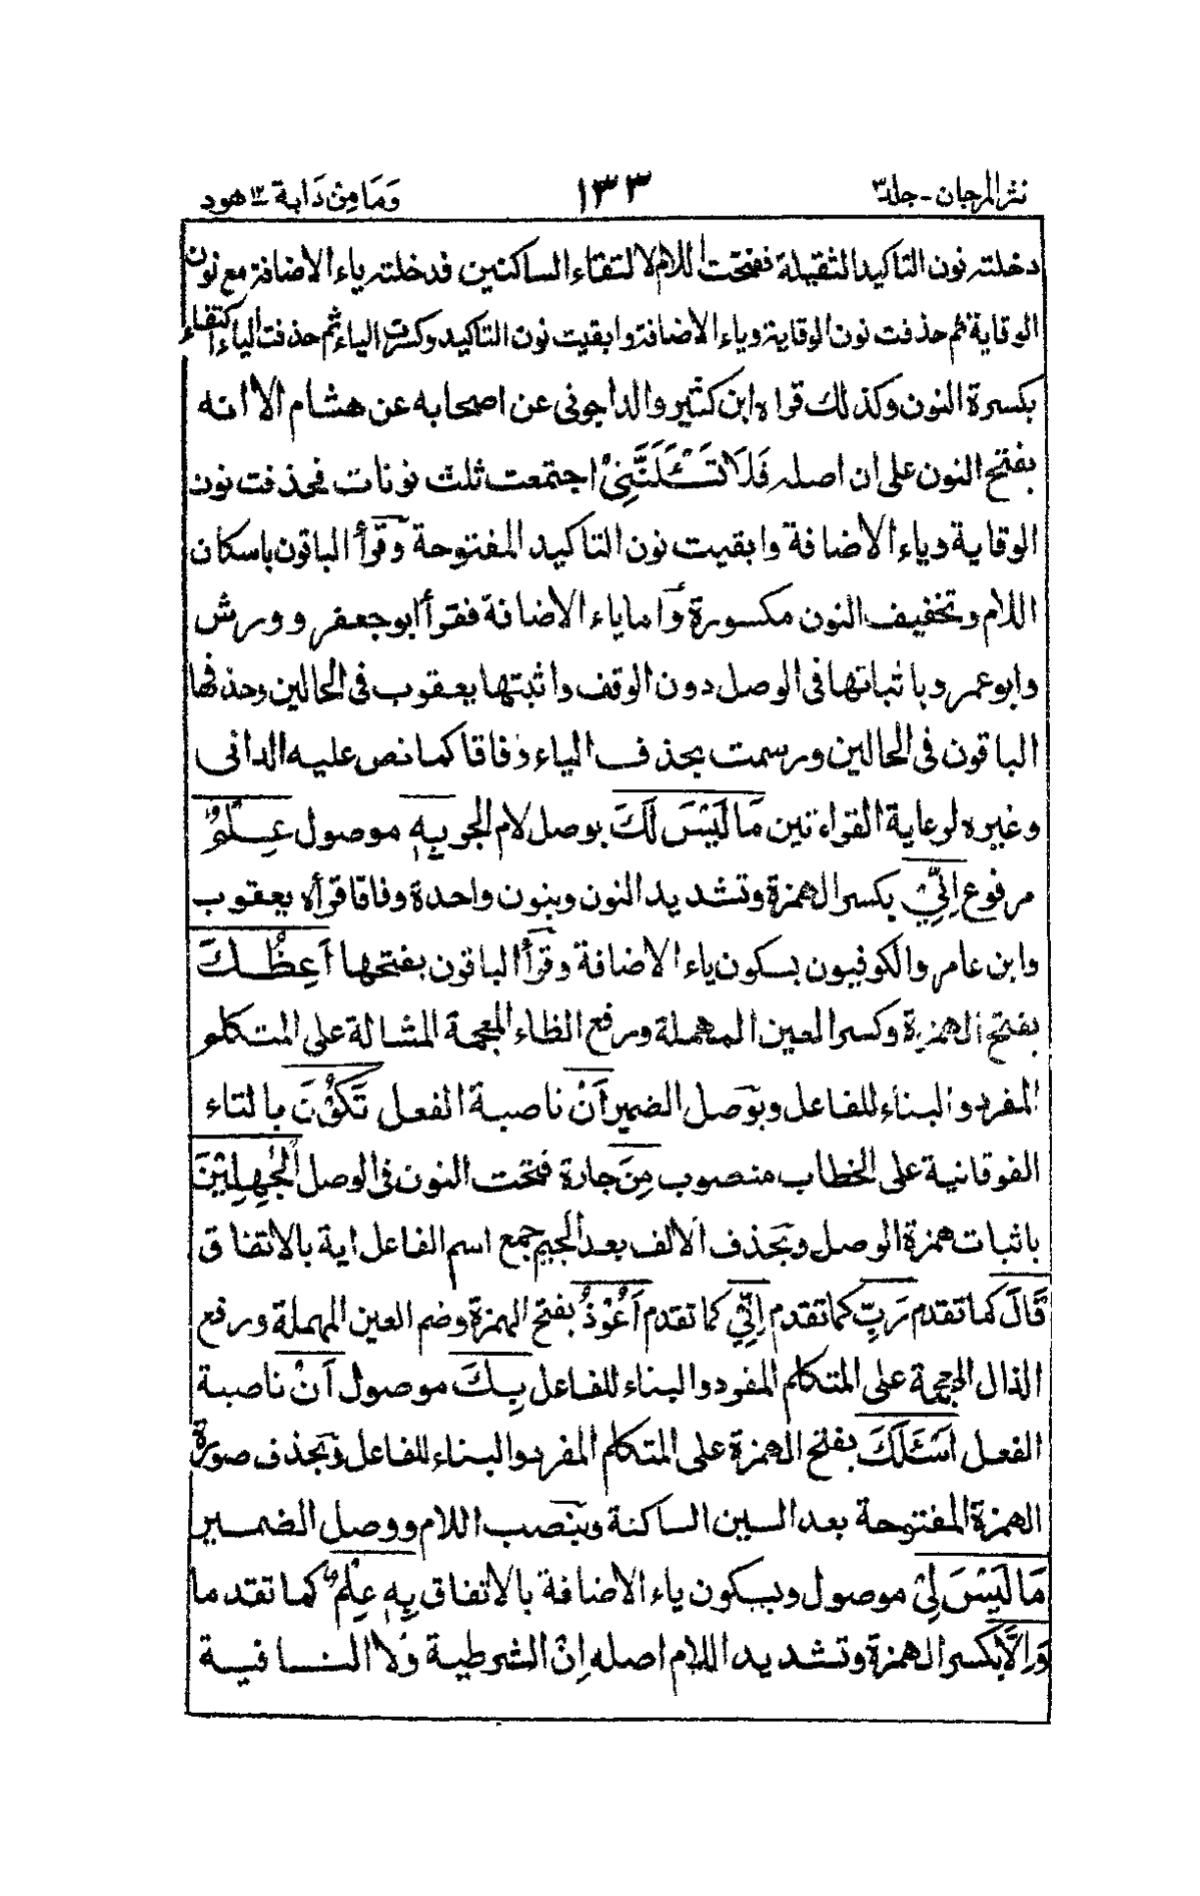 نثر المرجان - جلد ٣ ١٣٣ وَمَا مِنْ دَابة ١٢ هود
دخلته نون التاكيد الثقيلة ففتحت اللام لالتقاء الساكنين فدخلته ياء الاضافة مع نون
الوقاية ثم حذفت نون الوقاية وياء الاضافة وابقيت نون التاكيد وكسرت الياء ثم حذفت الياء اكتفاء
بكسرة النون وكذلك قراه ابن كثير والداجونى عن اصحابه عن هشام الا انه
بفتح النون على ان اصله فَلَا تَسْـَٔلَنَّنِىْ اجتمعت ثلث نونات فحذفت نون
الوقاية وياء الاضافة وابقيت نون التاكيد المفتوحة وقرأ الباقون باسكان
اللام وتخفيف النون مكسورة وَاما ياء الاضافة فقرأ ابو جعفر وورش
وابو عمرو باثباتها فى الوصل دون الوقف واثبتها يعقوب فى الحالين وحذفها
الباقون فى الحالين ورسمت بحذف الياء وفاقا كما نص عليه الدانى
وغيره لرعاية القراءتين مَا لَيْسَ لَكَ بوصل لام الجر بِهٖ موصول عِلْمٌ
مرفوع اِنِّىْ بكسر الهمزة وتشديد النون وبنون واحدة وفاقا قرأه يعقوب
وابن عامر والكوفيون بسكون ياء الاضافة وقرأ الباقون بفتحها اَعِظُكَ
بفتح الهمزة وكسر العين المهملة ورفع الظاء المعجمة المشالة على المتكلم
المفرد والبناء للفاعل وبوصل الضمير اَنْ ناصبة الفعل تَكُوْنَ بالتاء
الفوقانية على الخطاب منصوب مِنَ جارة فتحت النون فى الوصل الْجٰهِلِيْنَ
باثبات همزة الوصل وبحذف الالف بعد الجيم جمع اسم الفاعل اية بالاتفاق
قَالَ كما تقدم رَبِّ كما تقدم اِنِّىْ كما تقدم اَعُوْذُ بفتح الهمزة وضم العين المهملة ورفع
الذال المعجمة على المتكلم المفرد والبناء للفاعل بِكَ موصول اَنْ ناصبة
الفعل اَسْئَلَكَ بفتح الهمزة على المتكلم المفرد والبناء للفاعل وبحذف صورة
الهمزة المفتوحة بعد السين الساكنة وبنصب اللام ووصل الضمير
مَا لَيْسَ لِىْ موصول وبسكون ياء الاضافة بالاتفاق بِهٖ عِلْمٌ كما تقدما
وَاِلَّا بكسر الهمزة وتشديد اللام اصله اِنْ الشرطية وَلا النافية